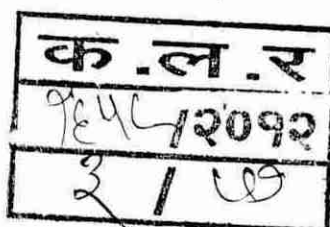 क.ल.र
१६५८/२०१२
३ / ७